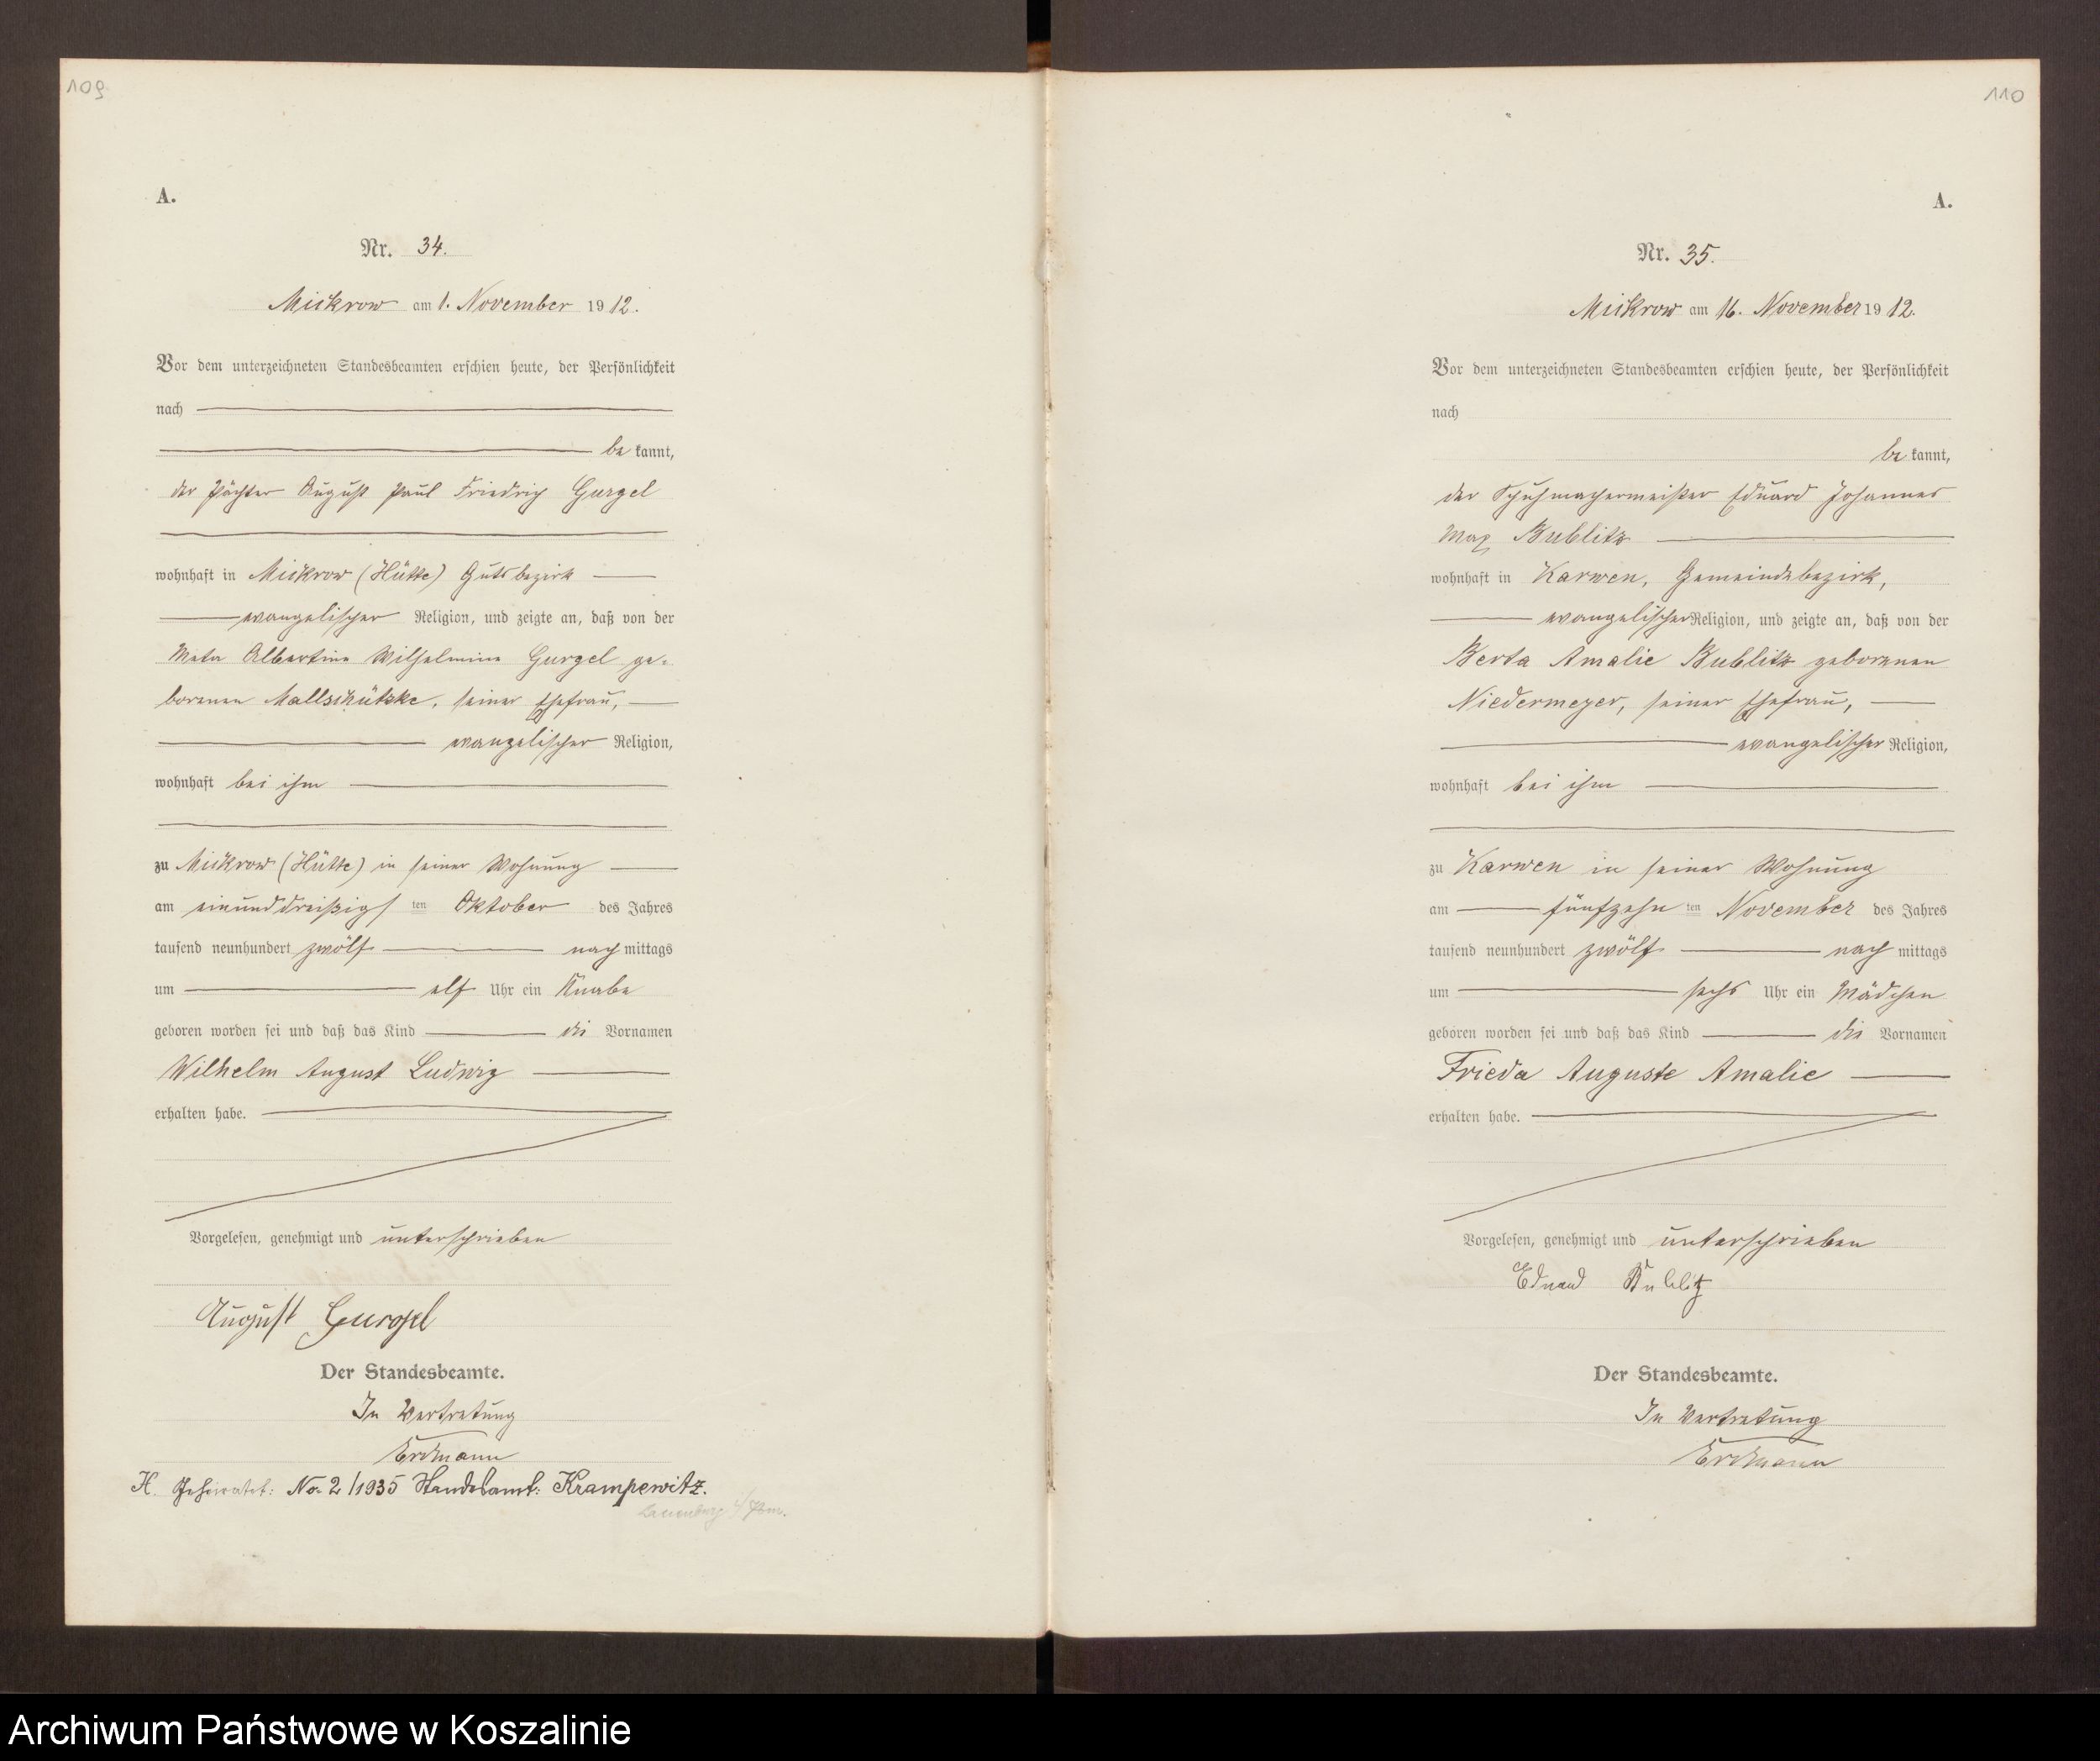 109
A.
Nr. 34.
Mickrow am 1. November 1912.
Vor dem unterzeichneten Standesbeamten erschien heute, der Persönlichkeit
nach
be kannt,
der Pächter August Paul Friedrich Gurgel
wohnhaft in Mickrow (Hütte) Gutsbezirk
evangelischer Religion, und zeigte an, daß von der
Meta Albertine Wilhelmine Gurgel ge-
borenen Mallschützke, seiner Ehefrau,
evangelischer Religion,
wohnhaft bei ihm
zu Mickrow (Hütte) in seiner Wohnung
am einunddreißigsten Oktober des Jahres
tausend neunhundert zwölf nach mittags
um elf Uhr ein Knabe
geboren worden sei und daß das Kind die Vornamen
Wilhelm August Ludwig
erhalten habe.
Vorgelesen, genehmigt und unterschrieben
August Gurgel
Der Standesbeamte.
In Vertretung
Erdmann
H. Geheiratet: No. 2/1935 Standesamt: Krampewitz.
Lauenburg i/Pom.
110
A.
Nr. 35.
Mickrow am 16. November 1912.
Vor dem unterzeichneten Standesbeamten erschien heute, der Persönlichkeit
nach
be kannt,
der Schuhmachermeister Eduard Johannes
Max Bublitz
wohnhaft in Karwen, Gemeindebezirk,
evangelischer Religion, und zeigte an, daß von der
Berta Amalie Bublitz geborenen
Niedermeyer, seiner Ehefrau,
evangelischer Religion,
wohnhaft bei ihm
zu Karwen in seiner Wohnung
am fünfzehn ten November des Jahres
tausend neunhundert zwölf nach mittags
um sechs Uhr ein Mädchen
geboren worden sei und daß das Kind die Vornamen
Frieda Auguste Amalie
erhalten habe.
Vorgelesen, genehmigt und unterschrieben
Eduard Bublitz
Der Standesbeamte.
In Vertretung
Erdmann
Archiwum Państwowe w Koszalinie